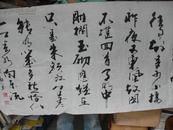 往事知多少小樓
昨夜又東風故國
不堪回首月明中
雕闌玉砌應猶在
只是朱顏改問君
能有幾多愁恰似
一江春水向東流